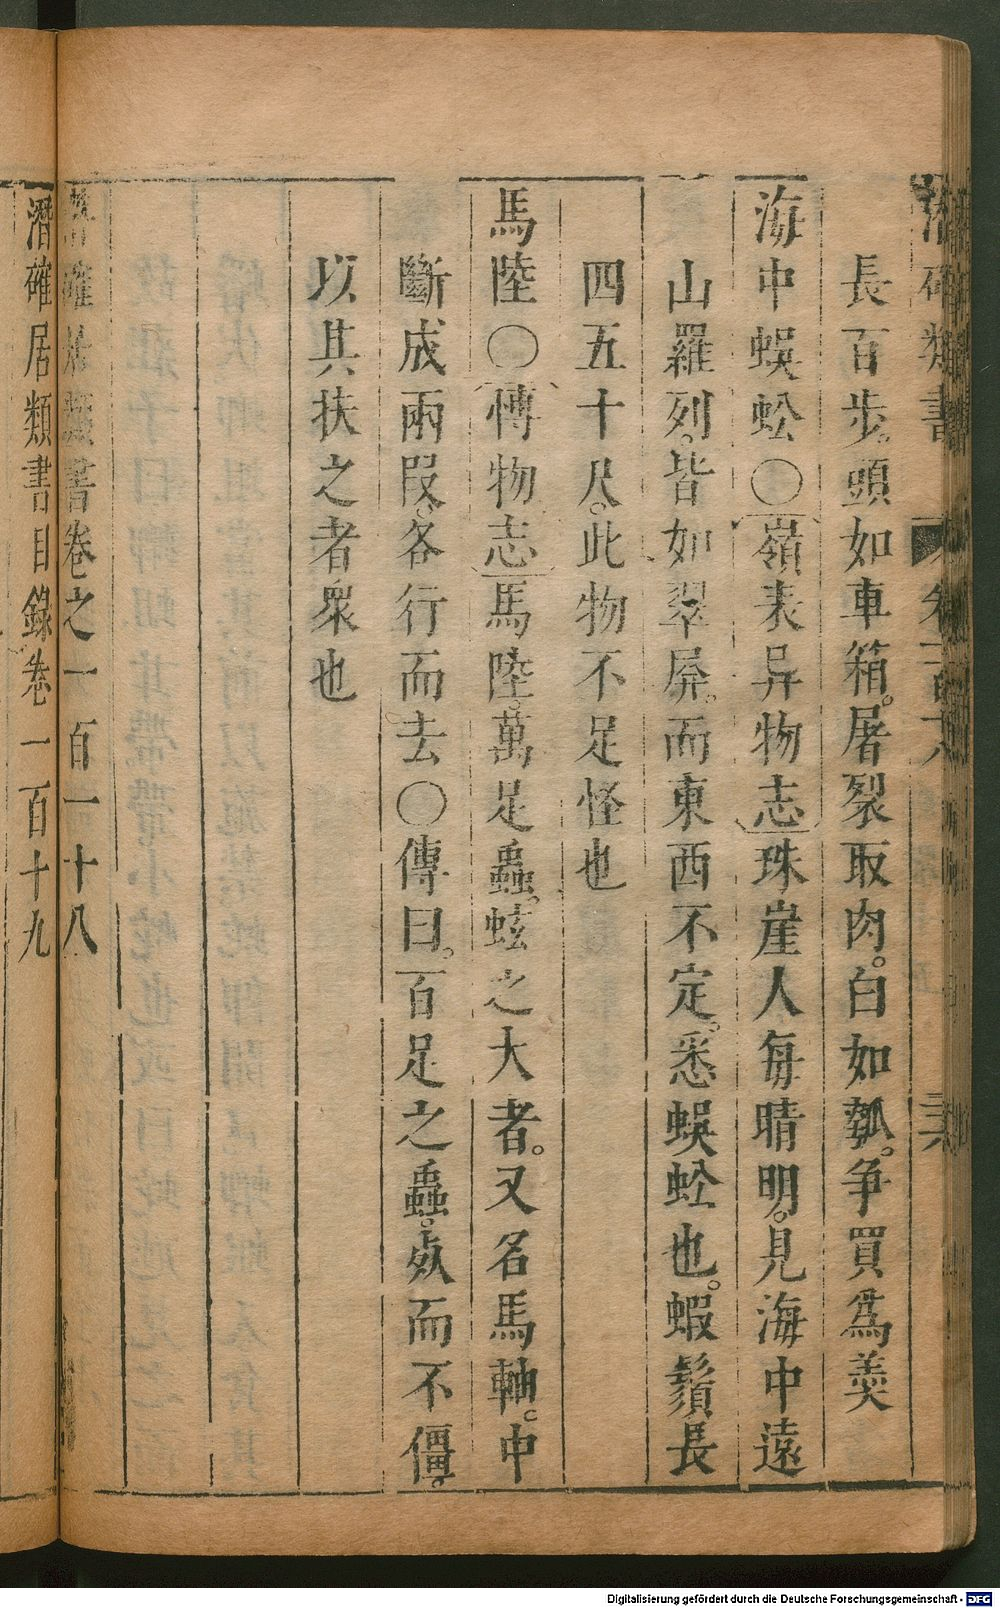 長百步。頭如車箱。屠裂取肉。白如瓠。争買爲羮
海中蜈蚣〇嶺表异物志珠崖人每晴明。見海中遠
山羅列。皆如翠屏。而東西不定。悉蜈蚣也。蝦鬚長
四五十尺。此物不足怪也
馬陸〇博物志馬陸。萬足蟲。蚿之大者。又名馬軸。中
斷成兩叚。各行而去〇傳曰。百足之蟲。死而不僵。
以其扶之者衆也
居類書卷之一百一十八
潛確居類書目錄卷一百十九
Digitalisierung gefördert durch die Deutsche Forschungsgemeinschaft - DFG